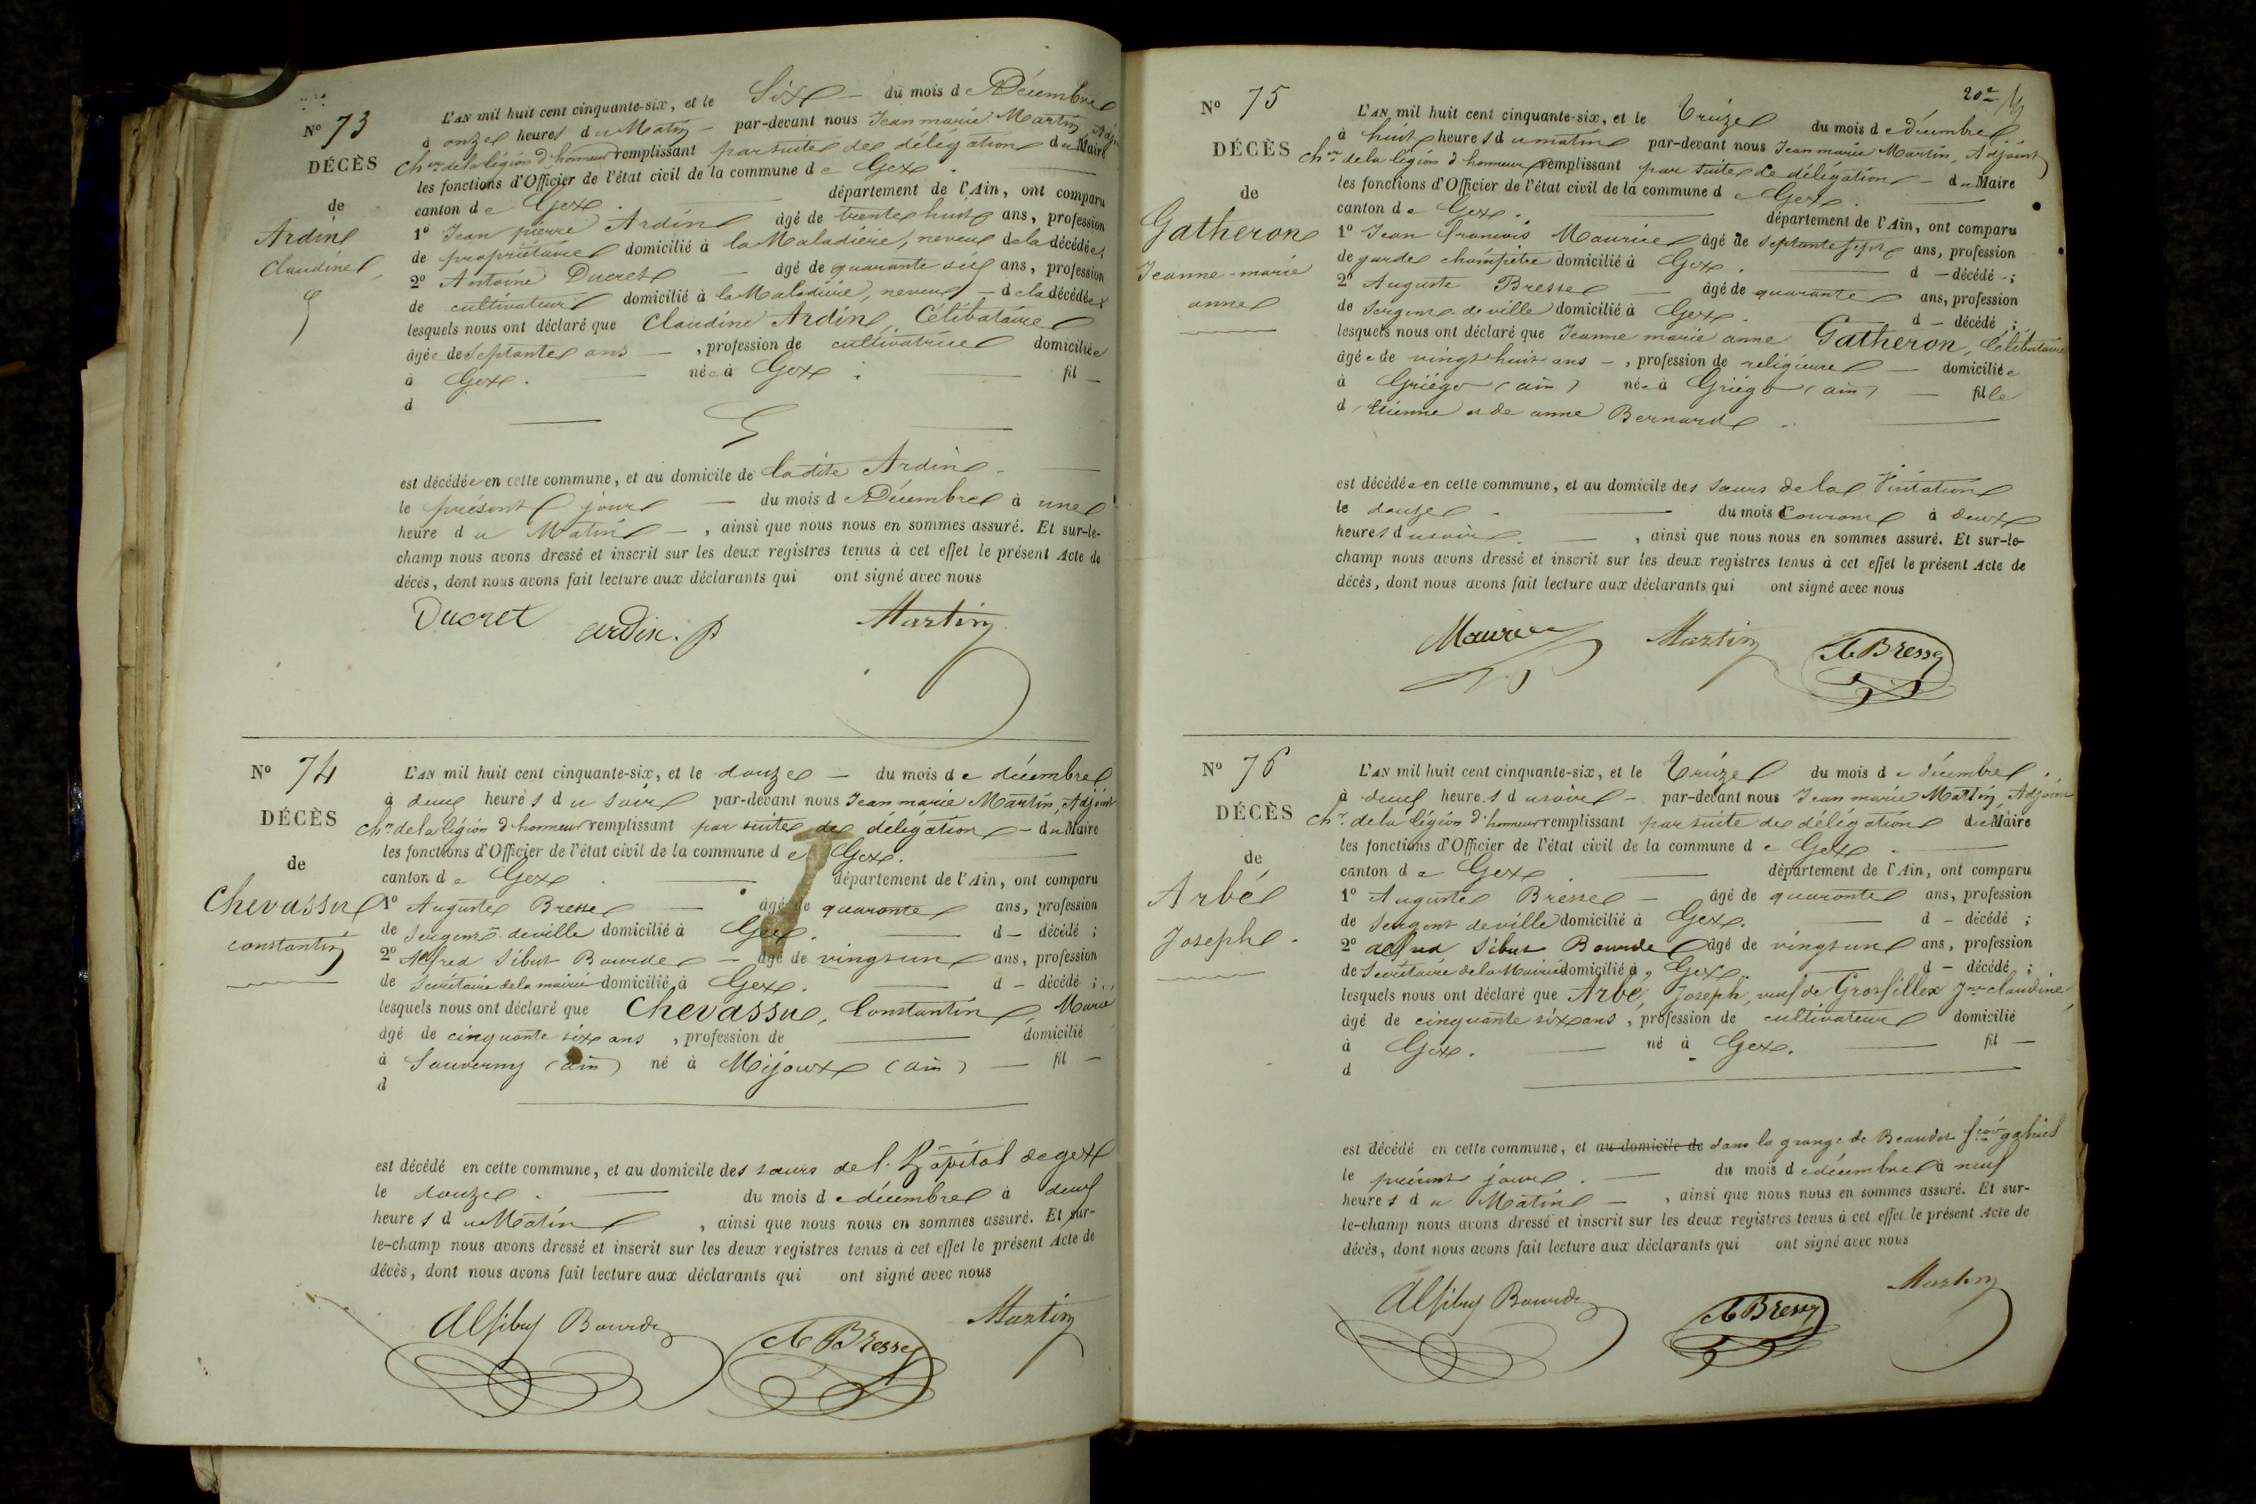 N° 73
DÉCÈS
de
Ardin
Claudine
L'AN mil huit cent cinquante-six, et le Six du mois de Décembre
à onze heures du Matin par-devant nous Jean marie Martin Adjoint
Ch.er de la légion d'honneur remplissant par suite de délégation du Maire
les fonctions d'Officier de l'état civil de la commune de Gex.
canton de Gex. département de l'Ain, ont comparu
1° Jean pierre Ardin âgé de trente huit ans, profession
de propriétaire domicilié à la Maladière, neveu de la décédée;
2° Antoine Ducret âgé de quarante six ans, profession
de cultivateur domicilié à la Maladière, neveu de la décédée
lesquels nous ont déclaré que Claudine Ardin, Célibataire
âgée de Septante ans, profession de cultivatrice domiciliée
à Gex. née à Gex. fil
d
est décédée en cette commune, et au domicile de ladite Ardin
le présent jour du mois de Décembre à une
heure du Matin, ainsi que nous nous en sommes assuré. Et sur-le-
champ nous avons dressé et inscrit sur les deux registres tenus à cet effet le présent Acte de
décès, dont nous avons fait lecture aux déclarants qui ont signé avec nous
Ducret ardin. p Martin
N° 74
DÉCÈS
de
Chevassu
constantin
L'AN mil huit cent cinquante-six, et le douze du mois de décembre
à deux heures du soir par-devant nous Jean marie Martin, Adjoint
Ch.er de la légion d'honneur remplissant par suite de délégation du Maire
les fonctions d'Officier de l'état civil de la commune de Gex.
canton de Gex. département de l'Ain, ont comparu
1° Auguste Bresse âgé de quarante ans, profession
de Sergent de ville domicilié à Gex. d décédé;
2° Alfred Sibut Bourde âgé de vingt un ans, profession
de Secrétaire de la mairie domicilié à Gex. d décédé;
lesquels nous ont déclaré que Chevassu, Constantin, Marie
âgé de cinquante six ans, profession de domicilié
à Sauverny (ain) né à Mijoux (ain) fil
d
est décédé en cette commune, et au domicile des sœurs de l'hôpital de gex
le douze du mois de décembre à deux
heures du Matin, ainsi que nous nous en sommes assuré. Et sur-
le-champ nous avons dressé et inscrit sur les deux registres tenus à cet effet le présent Acte de
décès, dont nous avons fait lecture aux déclarants qui ont signé avec nous
Al Sibut Bourde A Bresse Martin
N° 75
DÉCÈS
de
Gatheron
Jeanne-marie
anne
L'AN mil huit cent cinquante-six, et le treize du mois de décembre
à huit heures du matin par-devant nous Jean marie Martin, Adjoint
Ch.er de la légion d'honneur remplissant par suite de délégation du Maire
les fonctions d'Officier de l'état civil de la commune de Gex.
canton de Gex. département de l'Ain, ont comparu
1° Jean francois Maurice âgé de septante sept ans, profession
de garde champêtre domicilié à Gex. d décédé;
2° Auguste Bresse âgé de quarante ans, profession
de Sergent de ville domicilié à Gex. d décédé;
lesquels nous ont déclaré que Jeanne marie anne Gatheron, Célibataire
âgée de vingt huit ans, profession de religieuse domiciliée
à Griège (ain) née à Griège (ain) fille
d'Etienne et de anne Bernard
est décédée en cette commune, et au domicile des sœurs de la Visitation
le douze du mois Courant à deux
heures du soir, ainsi que nous nous en sommes assuré. Et sur-le-
champ nous avons dressé et inscrit sur les deux registres tenus à cet effet le présent Acte de
décès, dont nous avons fait lecture aux déclarants qui ont signé avec nous
Maurice Martin A Bresse
N° 76
DÉCÈS
de
Arbé
Joseph.
L'AN mil huit cent cinquante-six, et le treize du mois de décembre
à deux heures du soir par-devant nous Jean marie Martin, Adjoint
Ch.er de la légion d'honneur remplissant par suite de délégation du Maire
les fonctions d'Officier de l'état civil de la commune de Gex.
canton de Gex département de l'Ain, ont comparu
1° Auguste Bresse âgé de quarante ans, profession
de Sergent de ville domicilié à Gex. d décédé;
2° alfred Sibut Bourde âgé de vingt un ans, profession
de Secrétaire de la Mairie domicilié à Gex. d décédé;
lesquels nous ont déclaré que Arbé, Joseph, veuf de Grosfillex Jne claudine,
âgé de cinquante six ans, profession de cultivateur domicilié
à Gex. né à Gex. fil
d
est décédé en cette commune, et au domicile de dans la grange de Beaudet fcois gabriel
le présent jour du mois de décembre à neuf
heures du Matin, ainsi que nous nous en sommes assuré. Et sur-
le-champ nous avons dressé et inscrit sur les deux registres tenus à cet effet le présent Acte de
décès, dont nous avons fait lecture aux déclarants qui ont signé avec nous
Al Sibut Bourde A Bresse Martin